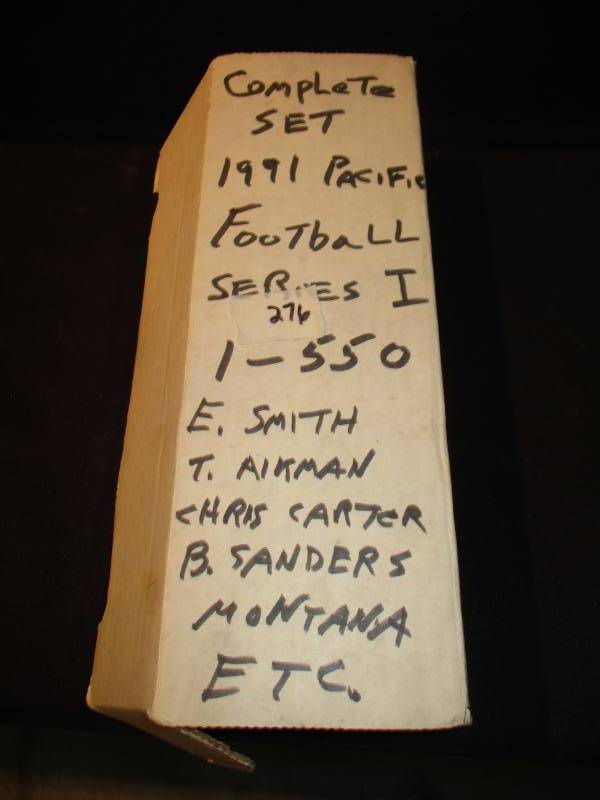 COMPLETE
SET
1991 PACIFIC
FOOTbALL
SERIES I
276
1-550
E. SMITH
T. AIKMAN
CHRIS CARTER
B. SANDERS
MONTANA
ETC.